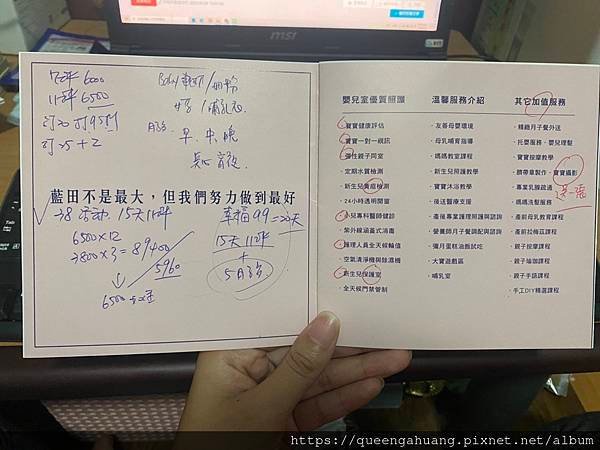 msi
7坪 6000
11坪 6500
訂20 打95折
訂25+2
早.中.晚
藍田不是最大，但我們努力做到最好
38 活動 15天11坪
6500×12
3800×3=89400
5960
6500
幸福99=20天
15天 11坪
+
嬰兒室優質照護
寶寶健康評估
寶寶一對一視訊
彈性親子同室
定期水質檢測
新生兒黃疸檢測
24小時透明開窗
小兒專科醫師健診
紫外線涵蓋式消毒
護理人員全天候輪值
空氣清淨機與除濕機
新生兒保護室
全天候門禁管制
溫馨服務介紹
友善母嬰環境
母乳哺育指導
媽媽教室課程
新生兒照護教學
寶寶沐浴教學
後送醫療支援
產後專業護理照護與諮詢
營養師月子餐調配與諮詢
彌月蛋糕油飯試吃
大寶遊戲區
哺乳室
其它加值服務
精緻月子餐外送
托嬰服務、嬰兒理髮
寶寶按摩教學
臍帶章製作、寶寶攝影
送一張
專業乳腺疏通
媽媽洗髮服務
產前母乳教育課程
產前拉梅茲課程
親子按摩課程
親子瑜珈課程
親子手語課程
手工DIY精選課程
https://queengahuang.pixnet.net/album